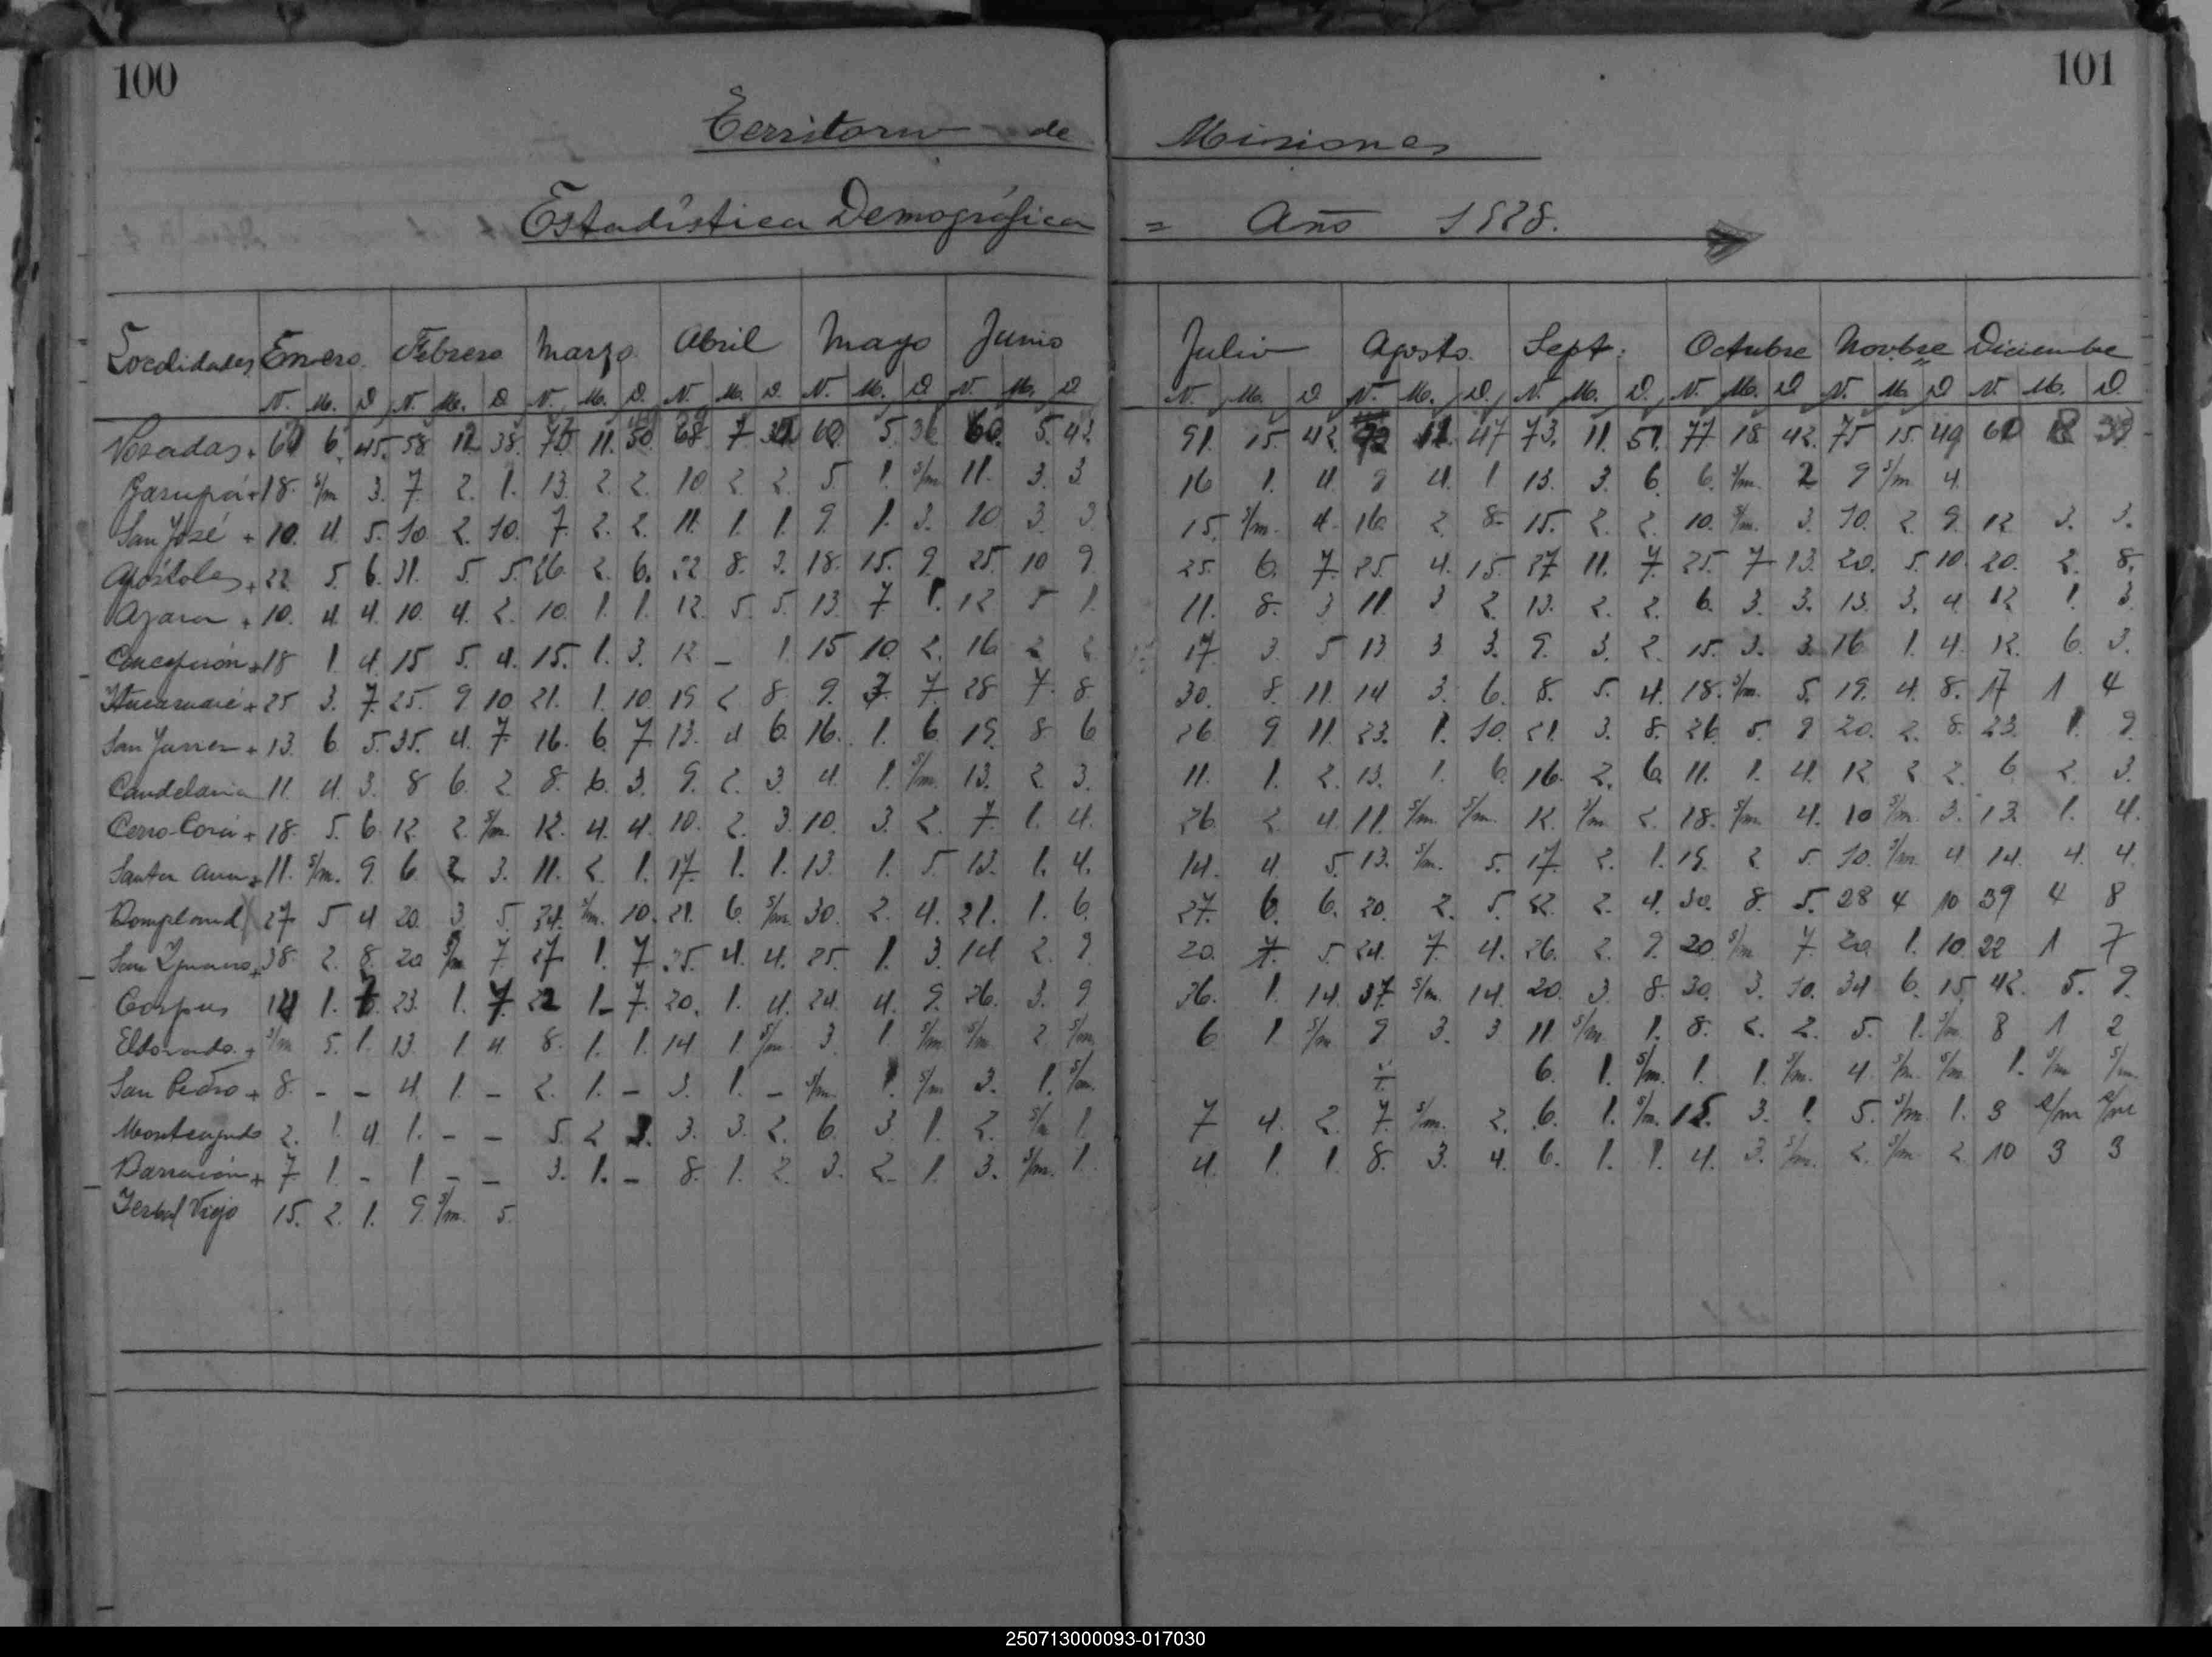 100
101
Territorio de Misiones
Estadística Demográfica = Año 1928.
Localidades Enero. Febrero Marzo. Abril Mayo Junio Julio Agosto. Sept. Octubre Novbre Diciembre
N. M. D N. M. D N. M. D. N. M. D. N. M. D N. M. D N. M. D N. M. D. N. M. D. N. M. D N. M. D N. M. D.
Posadas + 6. 45. 58 38. 11. 7 5. 5. 42. 91. 15. 42. 47 73. 11. 51. 77 18 42. 75 15. 49
Garupá + 18. s/m 3. 7. 2. 1. 13. 2. 2. 10 2. 2. 5 1. s/m 11. 3. 3 16 1. 4. 9 4. 1 13. 3. 6. 6. s/m. 2 9 s/m 4.
San José + 10. 4. 5. 10. 2. 10. 7. 2. 2. 11. 1. 1. 9. 1. 3. 10 3. 3 15. s/m. 4. 16. 2 8. 15. 2. 2. 10. s/m. 3. 10. 2. 9. 12 3. 3.
Apóstoles + 22 5. 6. 31. 5. 5. 26. 2. 6. 22 8. 3. 18. 15. 9. 25. 10 9. 25. 6. 7. 25. 4. 15. 27 11. 7. 25. 7 13. 20. 5. 10. 20. 2. 8.
Azara + 10. 4. 4. 10. 4. 2. 10. 1. 1. 12. 5. 5. 13. 7 1. 12 5 1. 11. 8. 3 11. 3 2. 13. 2. 2. 6. 3. 3. 13. 3. 4. 12 1. 3.
Concepción + 18 1. 4. 15 5. 4. 15. 1. 3. 12 – 1. 15 10. 2. 16 2 2 17. 3. 5 13 3. 3. 9. 3. 2. 15. 3. 3. 16 1. 4. 12. 6. 3.
+ 25 3. 7. 25. 9 10 21. 1. 10. 19 2 8. 9. 7. 28 7. 8. 30. 8. 11. 14 3. 6. 8. 5. 4. 18. s/m. 5. 19. 4. 8. 17 1 4
San Javier + 13. 6. 5. 35. 4. 7. 16. 6. 7 13. 4 6. 16. 1. 6. 19. 8 6 26 9. 11. 23. 1. 10. 21. 3. 8. 26. 5. 9 20. 2. 8. 23. 1. 9.
Candelaria 11. 4. 3. 8 6. 2. 8. 6. 3. 9. 2. 3. 4. 1. s/m. 13. 2. 3. 11. 1. 2. 13. 1. 6. 16. 2. 6. 11. 1. 4. 12 2 2. 6. 2. 3.
Cerro-Corá + 18. 5. 6. 12. 2. s/m. 12. 4. 4. 10. 2. 3. 10. 3. 2. 7. 1. 4. 26. 2 4. 11. s/m. s/m. 12. s/m 2. 18. s/m. 4. 10 s/m. 3. 13. 1. 4.
Santa Ana + 11. s/m. 9. 6. 2 3. 11. 2. 1. 17. 1. 1. 13. 1. 5. 13. 1. 4. 14. 4. 5. 13. s/m. 5. 17. 2. 1. 19. 2 5. 10. s/m. 4 14. 4. 4.
Bompland 27 5 4 20. 3. 5. 34. s/m. 10. 21. 6. s/m. 30. 2. 4. 21. 1. 6. 27. 6. 6. 20. 2. 5. 22. 2. 4. 30. 8. 5. 28 4 10 39 4 8
San Ignacio + 38. 2. 8. 20 s/m 7 27 1. 7. 25. 4. 4. 25. 1. 3. 14 2. 9. 20. 7. 5. 24. 7. 4. 26. 2. 9. 20 s/m 7. 20. 1. 10. 22 1 7
Corpus 1. 23. 1. 7. 22 1– 7. 20. 1. 4. 24. 4. 9. 26. 3. 9 36. 1. 14. 37. s/m. 14. 20. 3 8. 30. 3. 10. 34 6. 15. 42. 5. 9.
Eldorado. + s/m 5. 1. 13. 1. 4. 8. 1. 1. 14 1 s/m. 3. 1 s/m s/m. 2 s/m 6 1. s/m 9 3. 3 11 s/m. 1. 8. 2. 2. 5. 1. s/m. 8 1 2
San Pedro + 8. – – 4. 1. – 2. 1. – 3. 1. – s/m. 1. s/m 3. 1. s/m. 6. 1. s/m. 1. 1. s/m. 4. s/m. s/m. 1. s/m s/m.
Monteagudo 2. 1. 4. 1. – – 5. 2 3. 3. 3. 2. 6. 3 1. 2. s/m 1. 7 4. 2. 7. s/m. 2. 6. 1. s/m. 15. 3. 1. 5. s/m. 1. 3 s/m s/m
Barracón + 7. 1. – 1 – – 3. 1. – 8. 1. 2. 3. 2. 1. 3. s/m. 1. 4. 1. 1. 8. 3. 4. 6. 1. 1. 4. 3. s/m. 2. s/m. 2. 10 3 3
Yerbal Viejo 15. 2. 1. 9. s/m. 5.
250713000093-017030